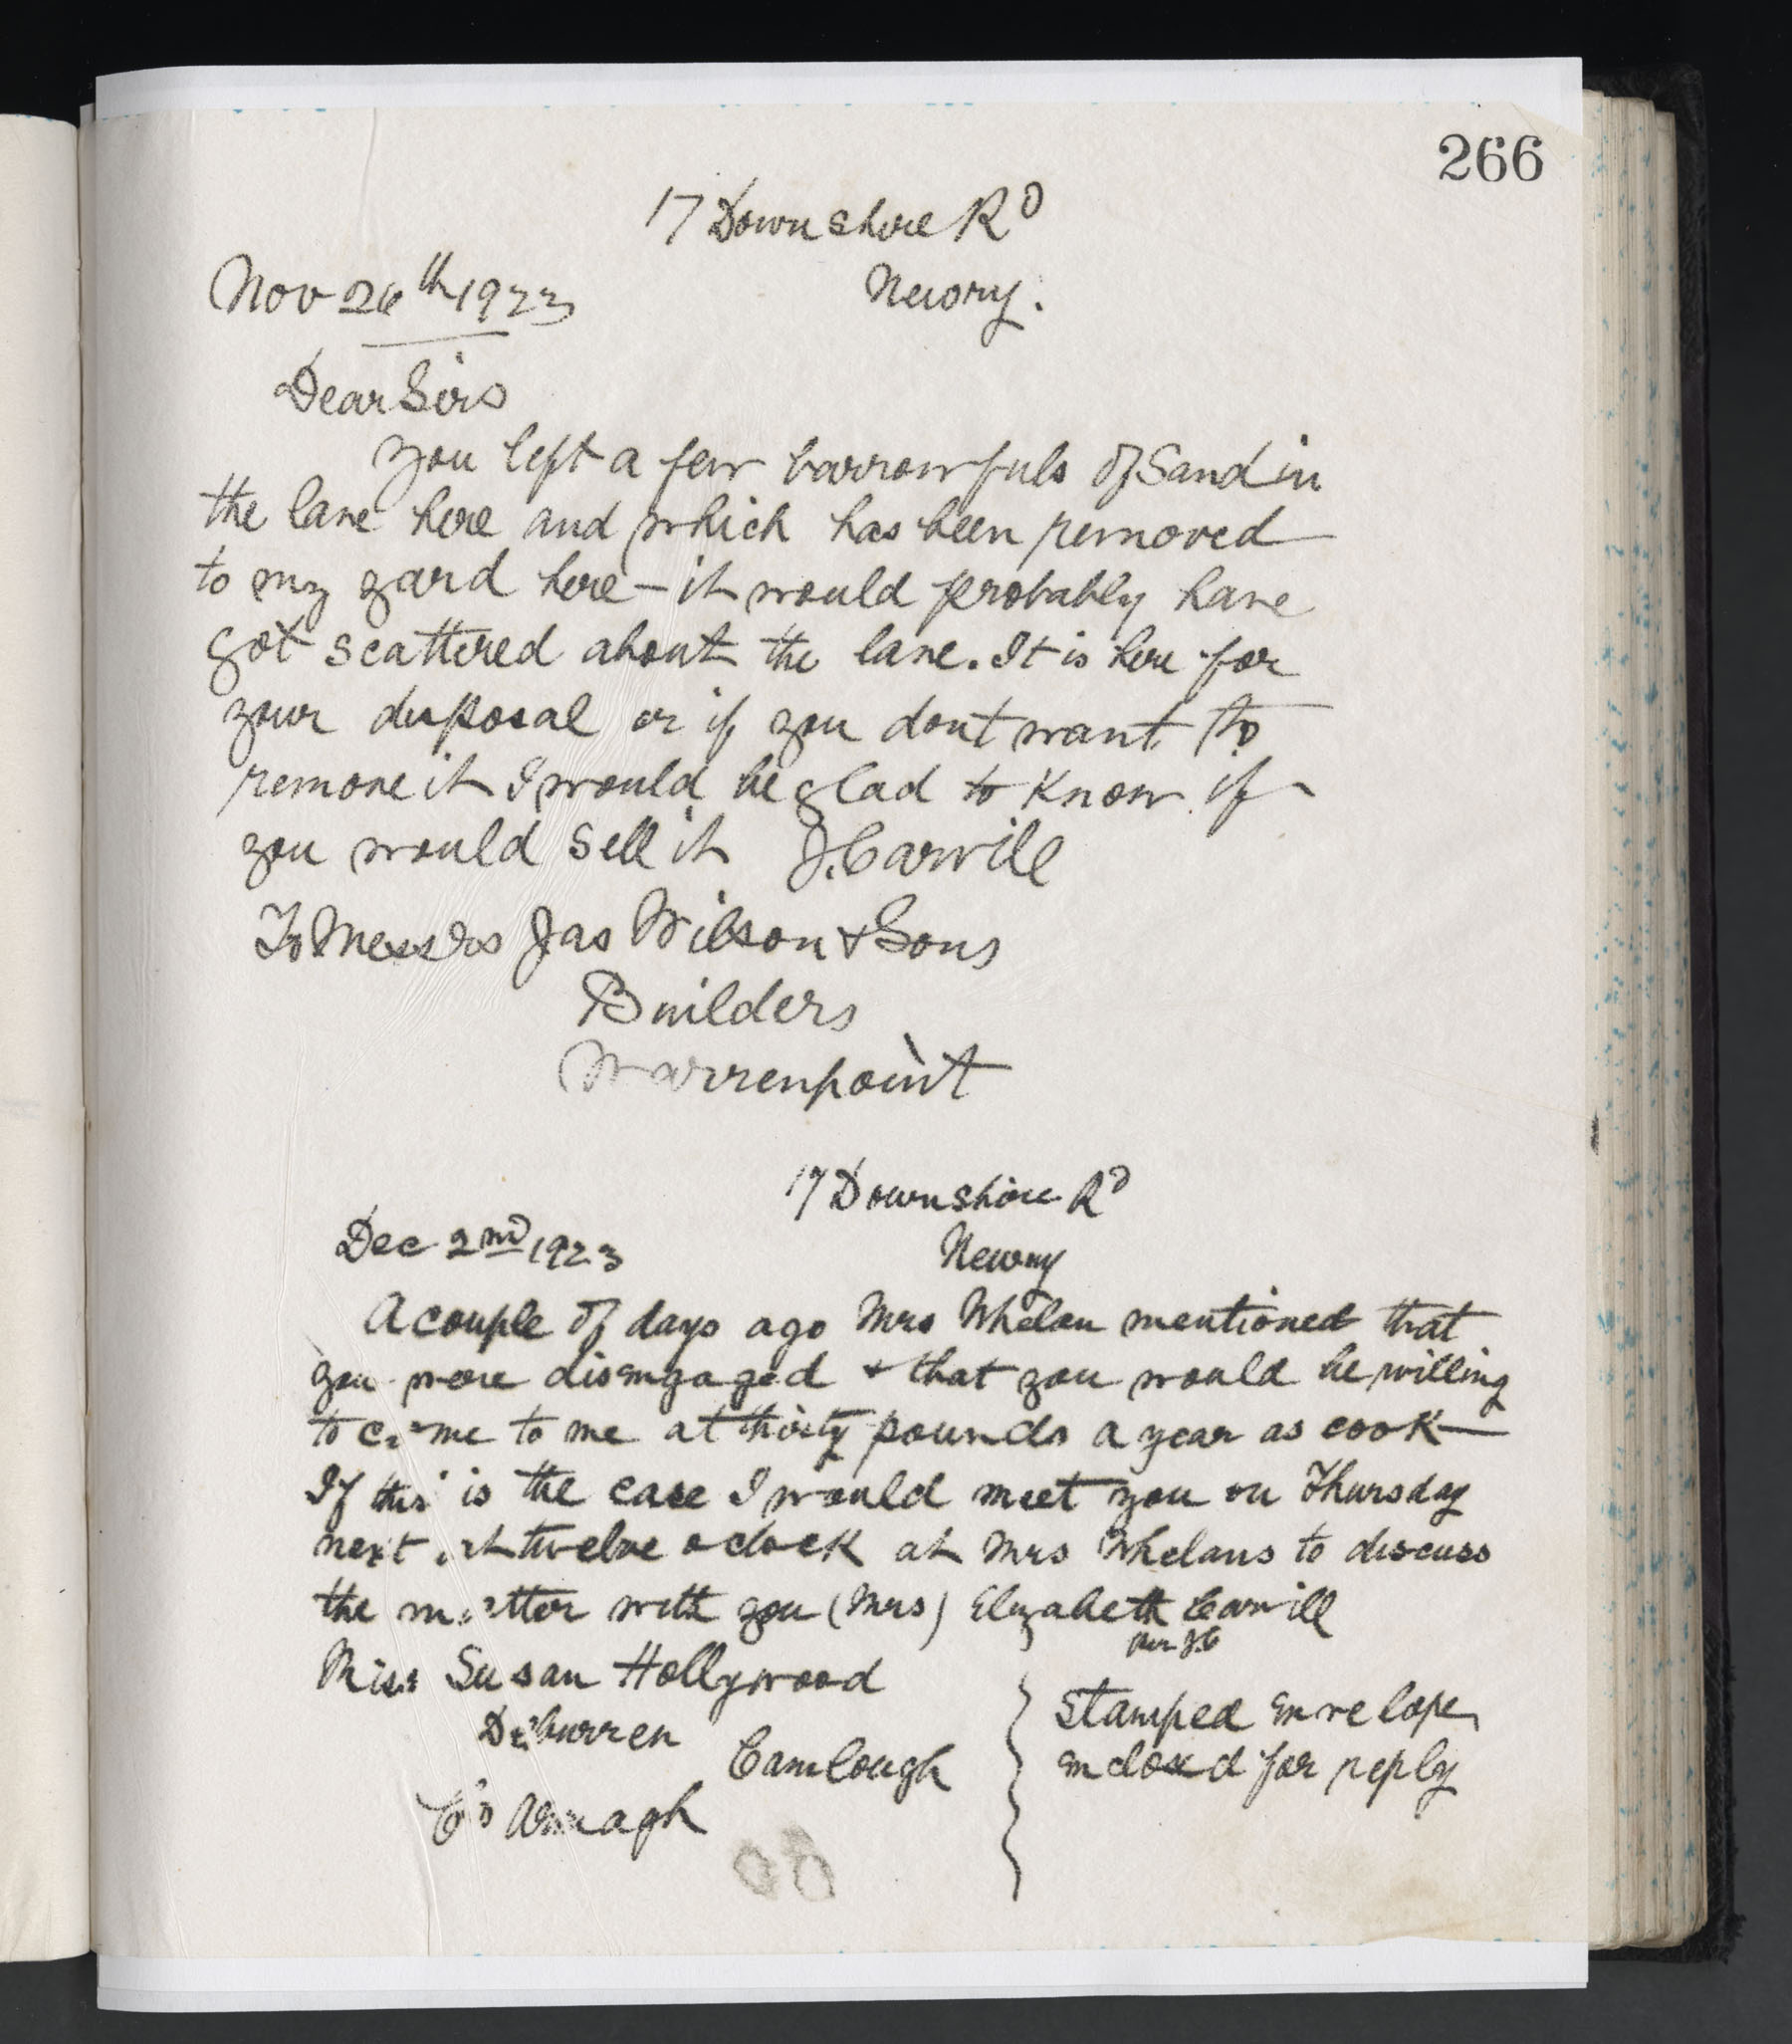 266
17 Downshire Rd
Nov 26th 1923 Newry.
Dear Sirs
you left a few barrowfuls of Sand in
the lane here and which has been removed
to my yard here – it would probably have
got scattered about the lane. It is here for
your disposal or if you dont want to
remove it I would be glad to know if
you would sell it J. Carvill
To Messrs Jas Wilson & Sons
Builders
Warrenpoint
17 Downshire Rd
Dec 2nd 1923 Newry
A couple of days ago Mrs Whelan mentioned that
you were disengaged & that you would be willing
to come to me at thirty pounds a year as cook –
If this is the case I would meet you on Thursday
next at twelve oclock at Mrs Whelans to discuss
the matter with you (Mrs) Elizabeth Carvill
per JC
Miss Susan Hollywood
Divurren
Camlough
Co Armagh
Stamped envelope
enclosed for reply